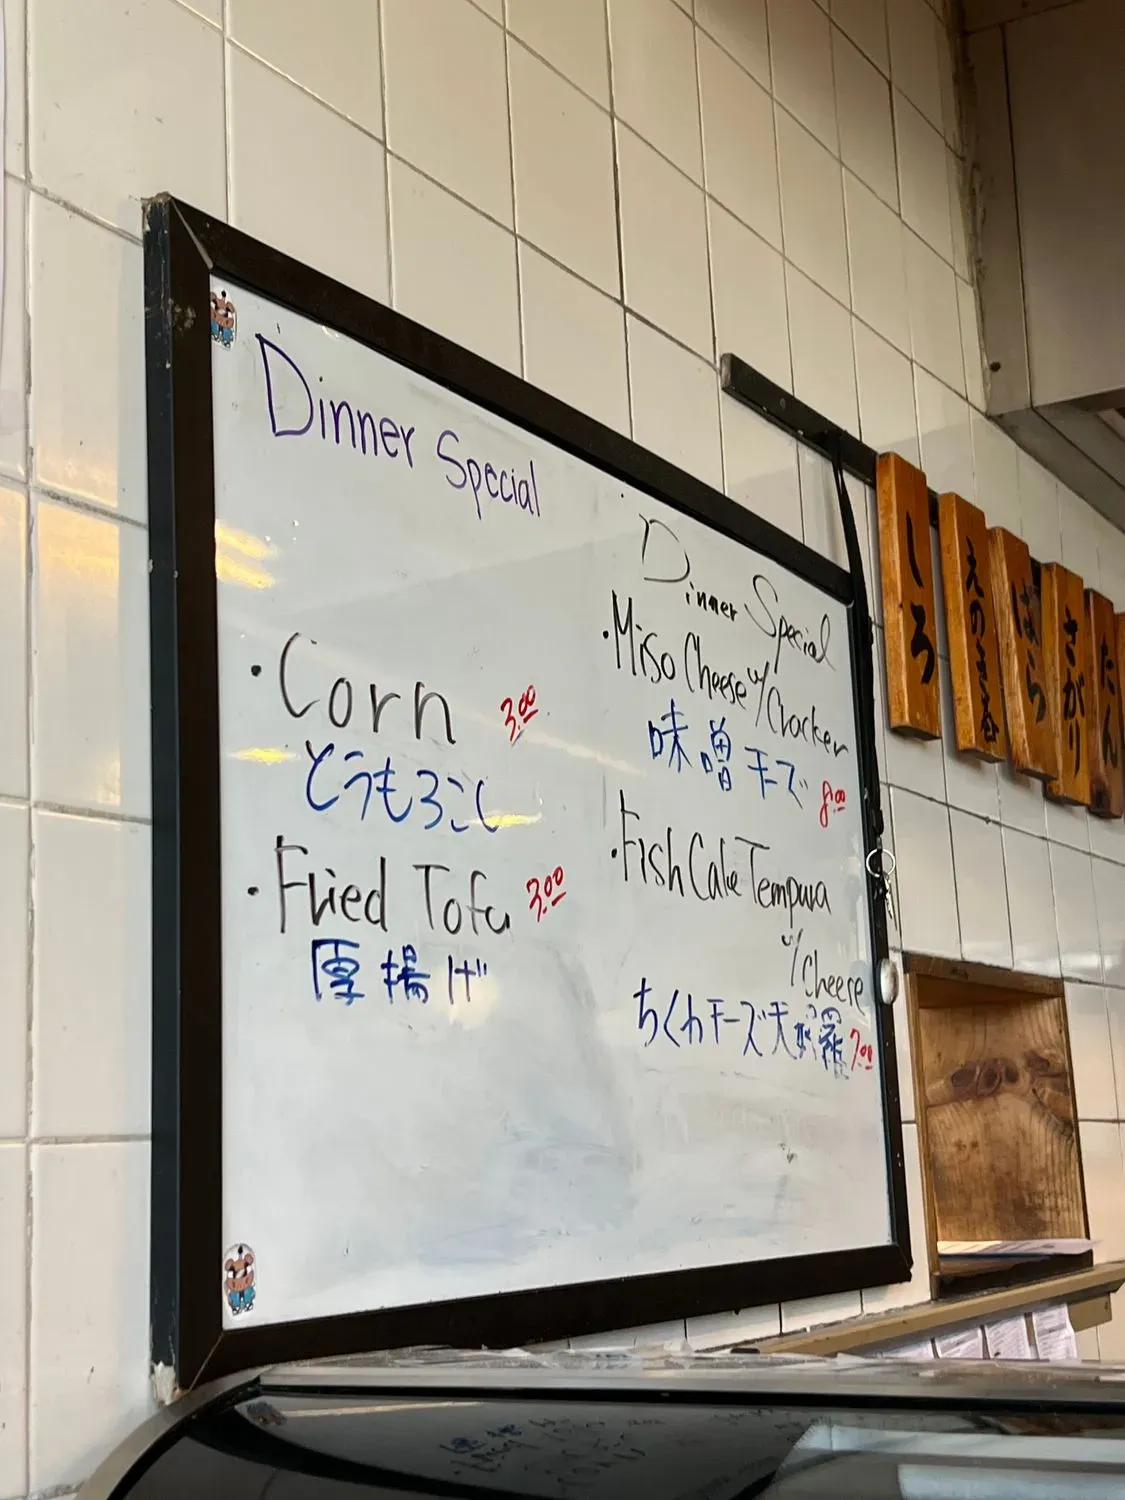 Dinner Special
• Corn 3.00
とうもろこし
• Fried Tofu 3.00
厚揚げ
Dinner Special
• Miso Cheese w/ Cracker
味噌チーズ 8.00
• Fish Cake Tempura
w/ Cheese
ちくわチーズ天ぷ羅 7.00
しろ
えのき巻
ばら
さがり
たん